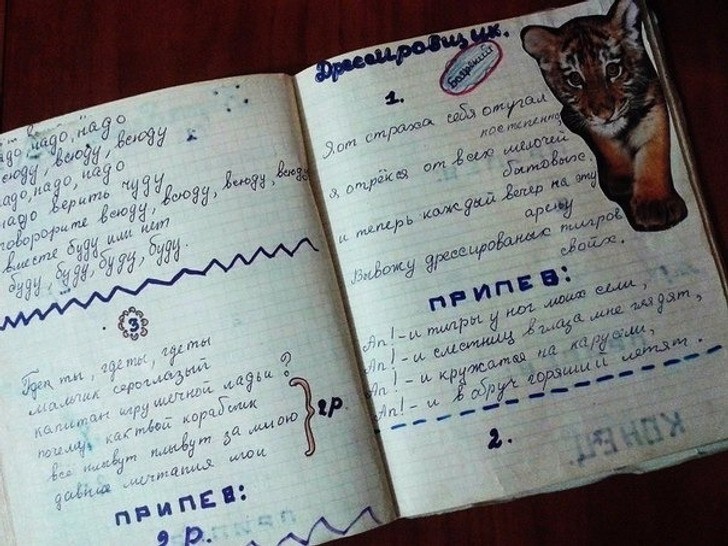 надо, надо
всюду, всюду, всюду
надо, надо, надо
надо верить чуду
говорорите всюду, всюду, всюду, всюду
вместе буду или нет
буду, буду, буду, буду.
3
Где ты, где ты, где ты
мальчик сероглазый
капитан игрушечной ладьи?
почему, как твой кораблик
все плывут за мною
давние мечтания мои
2р.
ПРИПЕВ:
2 р.
Дрессировщик.
Боярский
1.
Я от страха себя отучал
постепенно
я отрёкся от всех мелочей
бытовых.
и теперь каждый вечер на эту
арену
Вывожу дрессированых тигров
свойх.
ПРИПЕВ:
Ап! - и тигры у ног моих сели,
Ап! - и с лестниц в глаза мне глядят,
Ап! - и кружатся на карусели,
Ап! - и в обруч горящий летят.
2.
КОНЕЦ